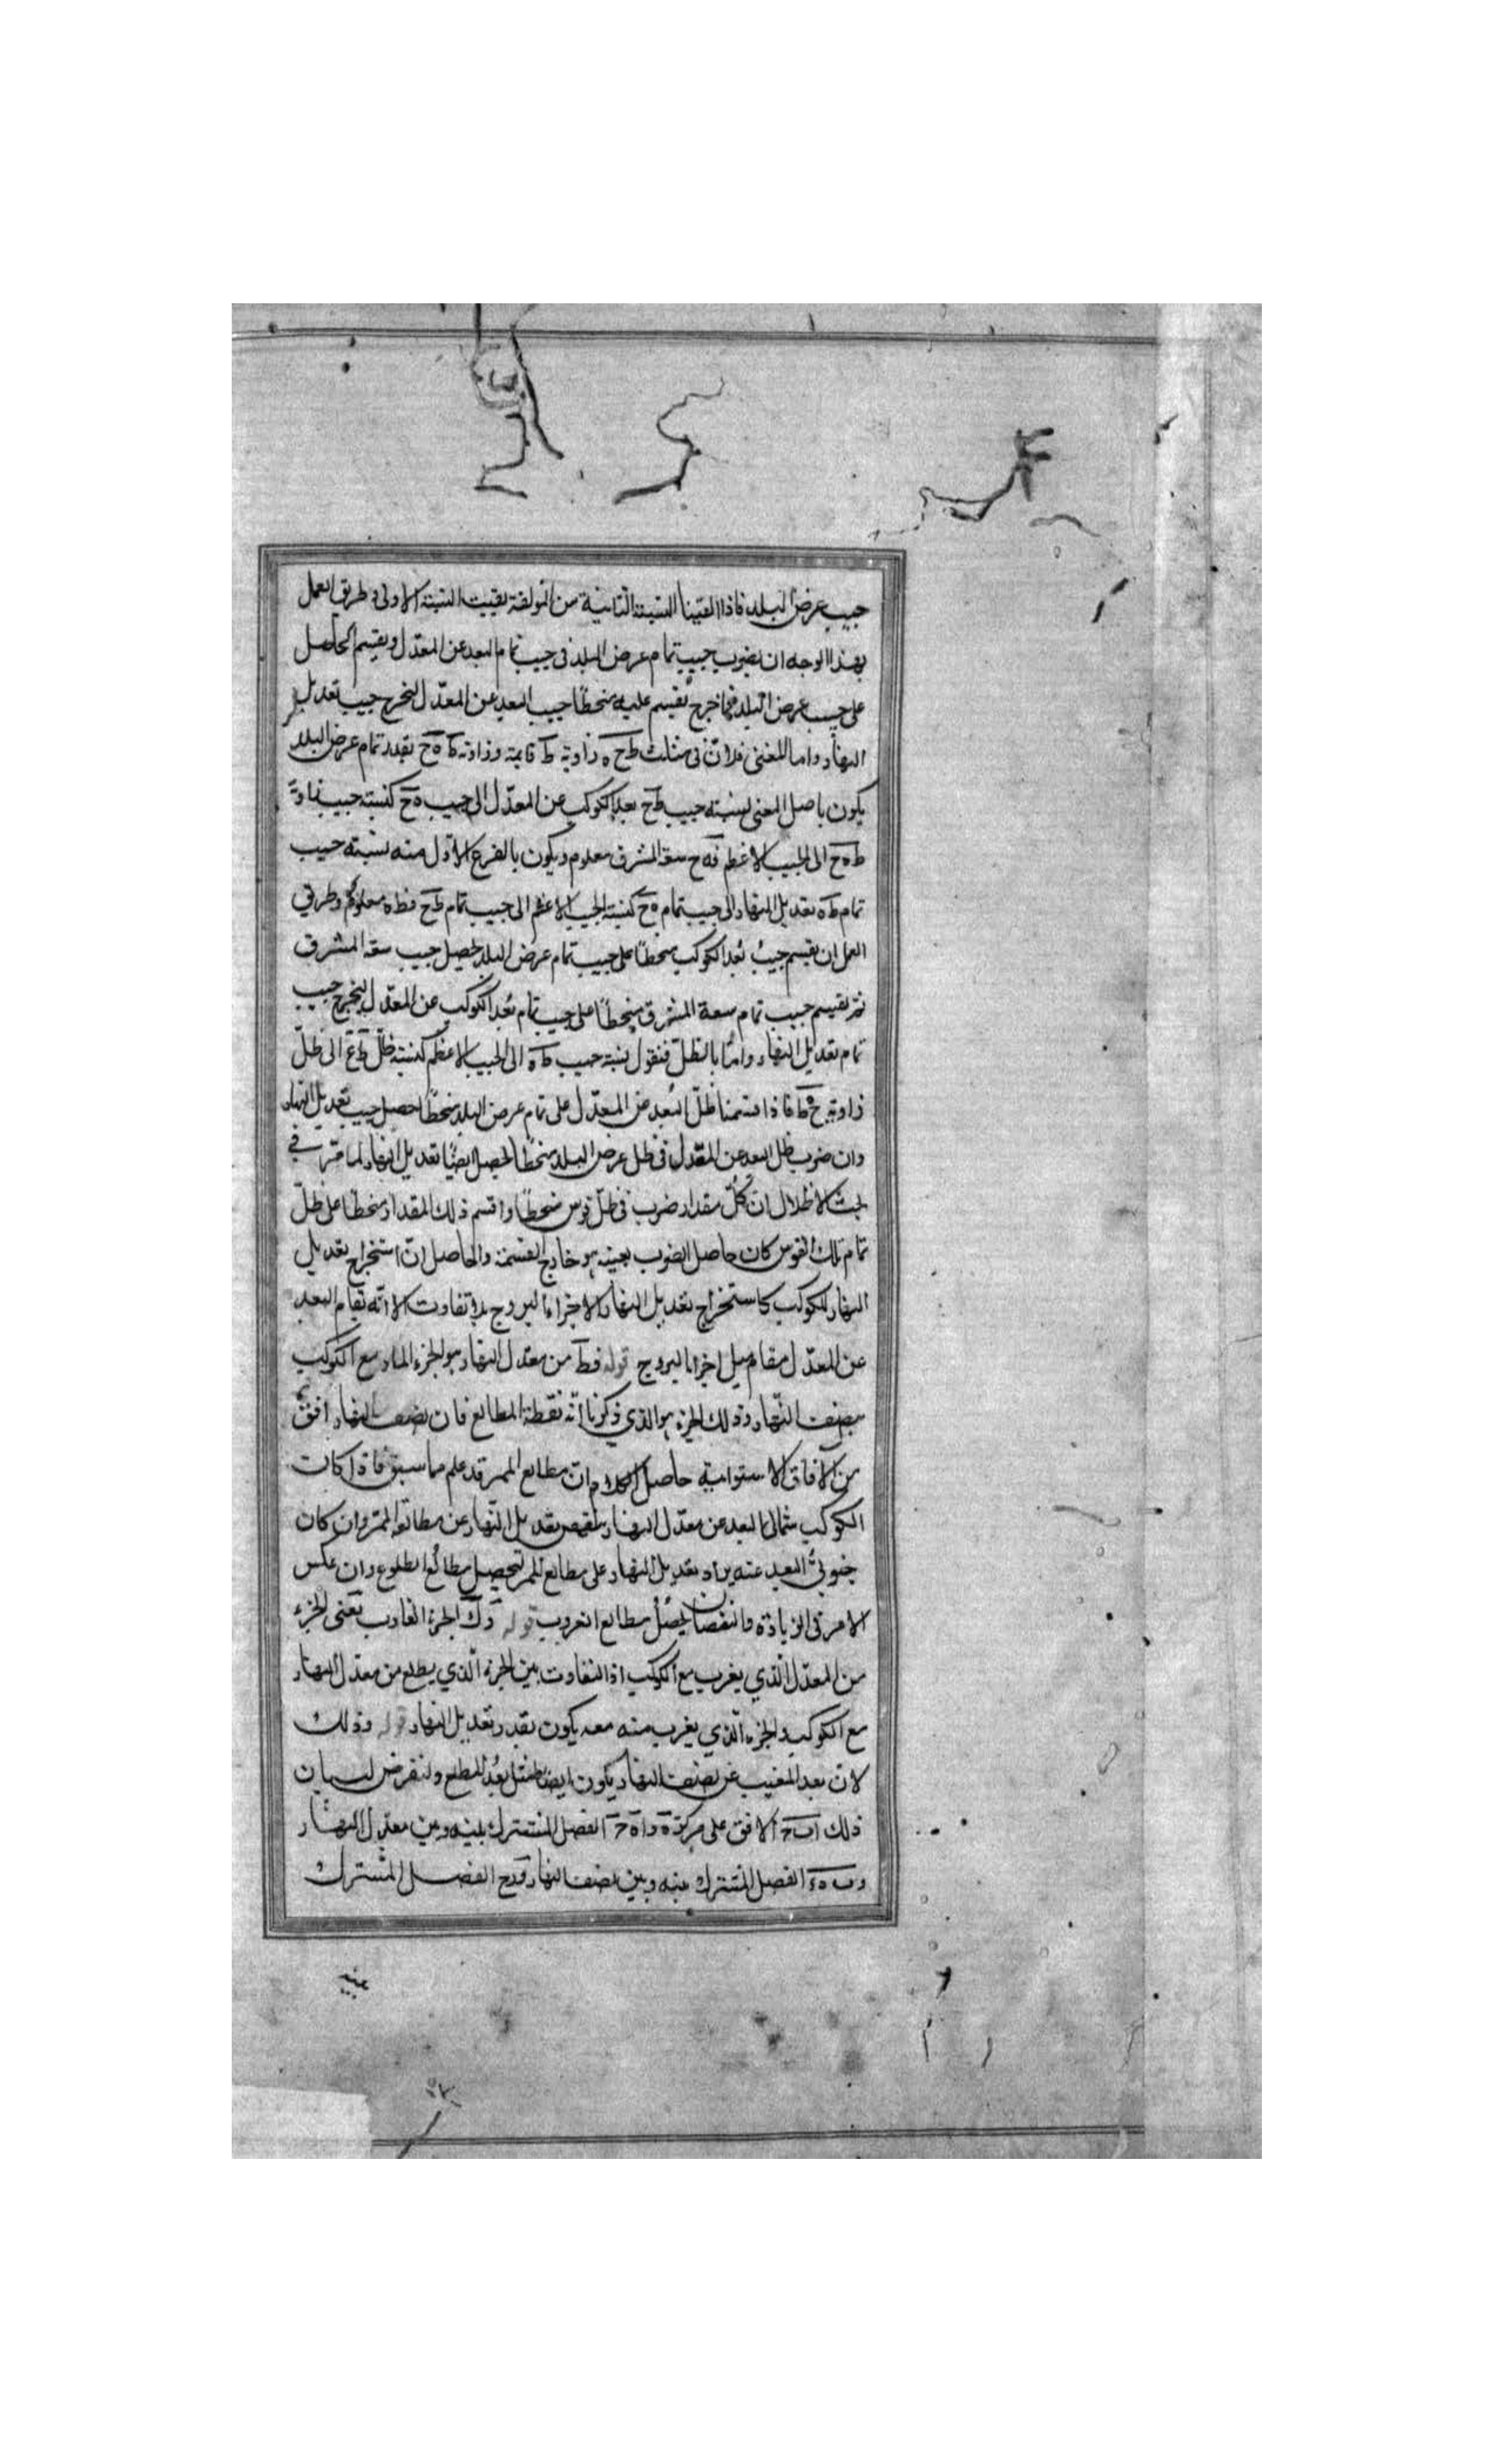 جيب عرض البلد فاذا القينا النسبة الثانية من المولفة بقيت النسبة الاولى وطريق العمل
بهذا الوجه ان يضرب جيب تمام عرض البلد فى جيب تمام البعد عن المعدل ويقسم الحاصل
على جيب عرض البلد فما خرج يقسم عليه منحطا جيب البعد عن المعدل ليخرج جيب تعديل
النهار واما للمغنى فلان فى مثلث ط ح ه زاوية ط قايمة وزاوية ط ه ح بقدر تمام عرض البلد
يكون باصل المغنى نسبة جيب ط ح بعد الكوكب عن المعدل الى جيب ه ح كنسبة جيب زاوية
ط ه ح الى الجيب الاعظم فه ح سعة المشرق معلوم ويكون بالفرع الاول منه نسبة جيب
تمام ط ه تعديل النهار الى جيب تمام ه ح كنسبة الجيب الاعظم الى جيب تمام ط ح فط ه معلوم وطريق
العمل ان يقسم جيب بُعد الكوكب منحطا على جيب تمام عرض البلد ليحصل جيب سعة المشرق
ثم يقسم جيب تمام سعة المشرق منحطا على جيب تمام بُعد الكوكب عن المعدل ليخرج جيب
تمام تعديل النهار واما بالظل فنقول نسبة جيب ط ه الى الجيب الاعظم كنسبة ظل ط ح الى ظل
زاوية ح ه ط فاذا قسمنا ظل البعد عن المعدل على تمام عرض البلد منحطا حصل جيب تعديل النهار
وان ضرب ظل البعد عن المعدل فى ظل عرض البلد منحطا ليحصل ايضا تعديل النهار لما مر فى
بحث الاظلال ان كل مقدار ضرب فى ظل قوس منحطا واقسم ذلك المقدار منحطا على ظل
تمام تلك القوس كان حاصل الضرب بعينه هو خارج القسمة والحاصل ان استخراج تعديل
النهار للكوكب كاستخراج تعديل النهار لاجزاء البروج بلا تفاوت الا انه يقام البعد
عن المعدل مقام ميل اجزا البروج قوله فط من معدل النهار هو الجزء المار مع الكوكب
بنصف النهار وذلك الجزء هو الذي ذكرنا انه نقطة المطالع فان نصف النهار افق
من الآفاق الاستوائية حاصل الكلام ان مطالع الممر قد علم مما سبق فاذا كانت
الكوكب شمالى البعد عن معدل النهار ينقص تعديل النهار عن مطالع الممر وان كان
جنوبي البعد عنه يزاد تعديل النهار على مطالع الممر لتحصيل مطالع الطلوع وان عكس
الامر فى الزيادة والنقصان يحصل مطالع الغروب قوله وك الجزء الغارب يعنى الجزء
من المعدل الذي يغرب مع الكوكب اذ التفاوت بين الجزء الذي يطلع من معدل النهار
مع الكوكب والجزء الذي يغرب منه معه يكون بقدر تعديل النهار قوله وذلك
لان بعد المغيب عن نصف النهار يكون ايضا مثل بُعد المطلع ولنفرض لبيان
ذلك ا ب ح الافق على مركز ه و ا ه ح الفصل المشترك بينه وبين معدل النهار
و ب ه ء الفصل المشترك بينه وبين نصف النهار و ح الفصل المشترك
بينه